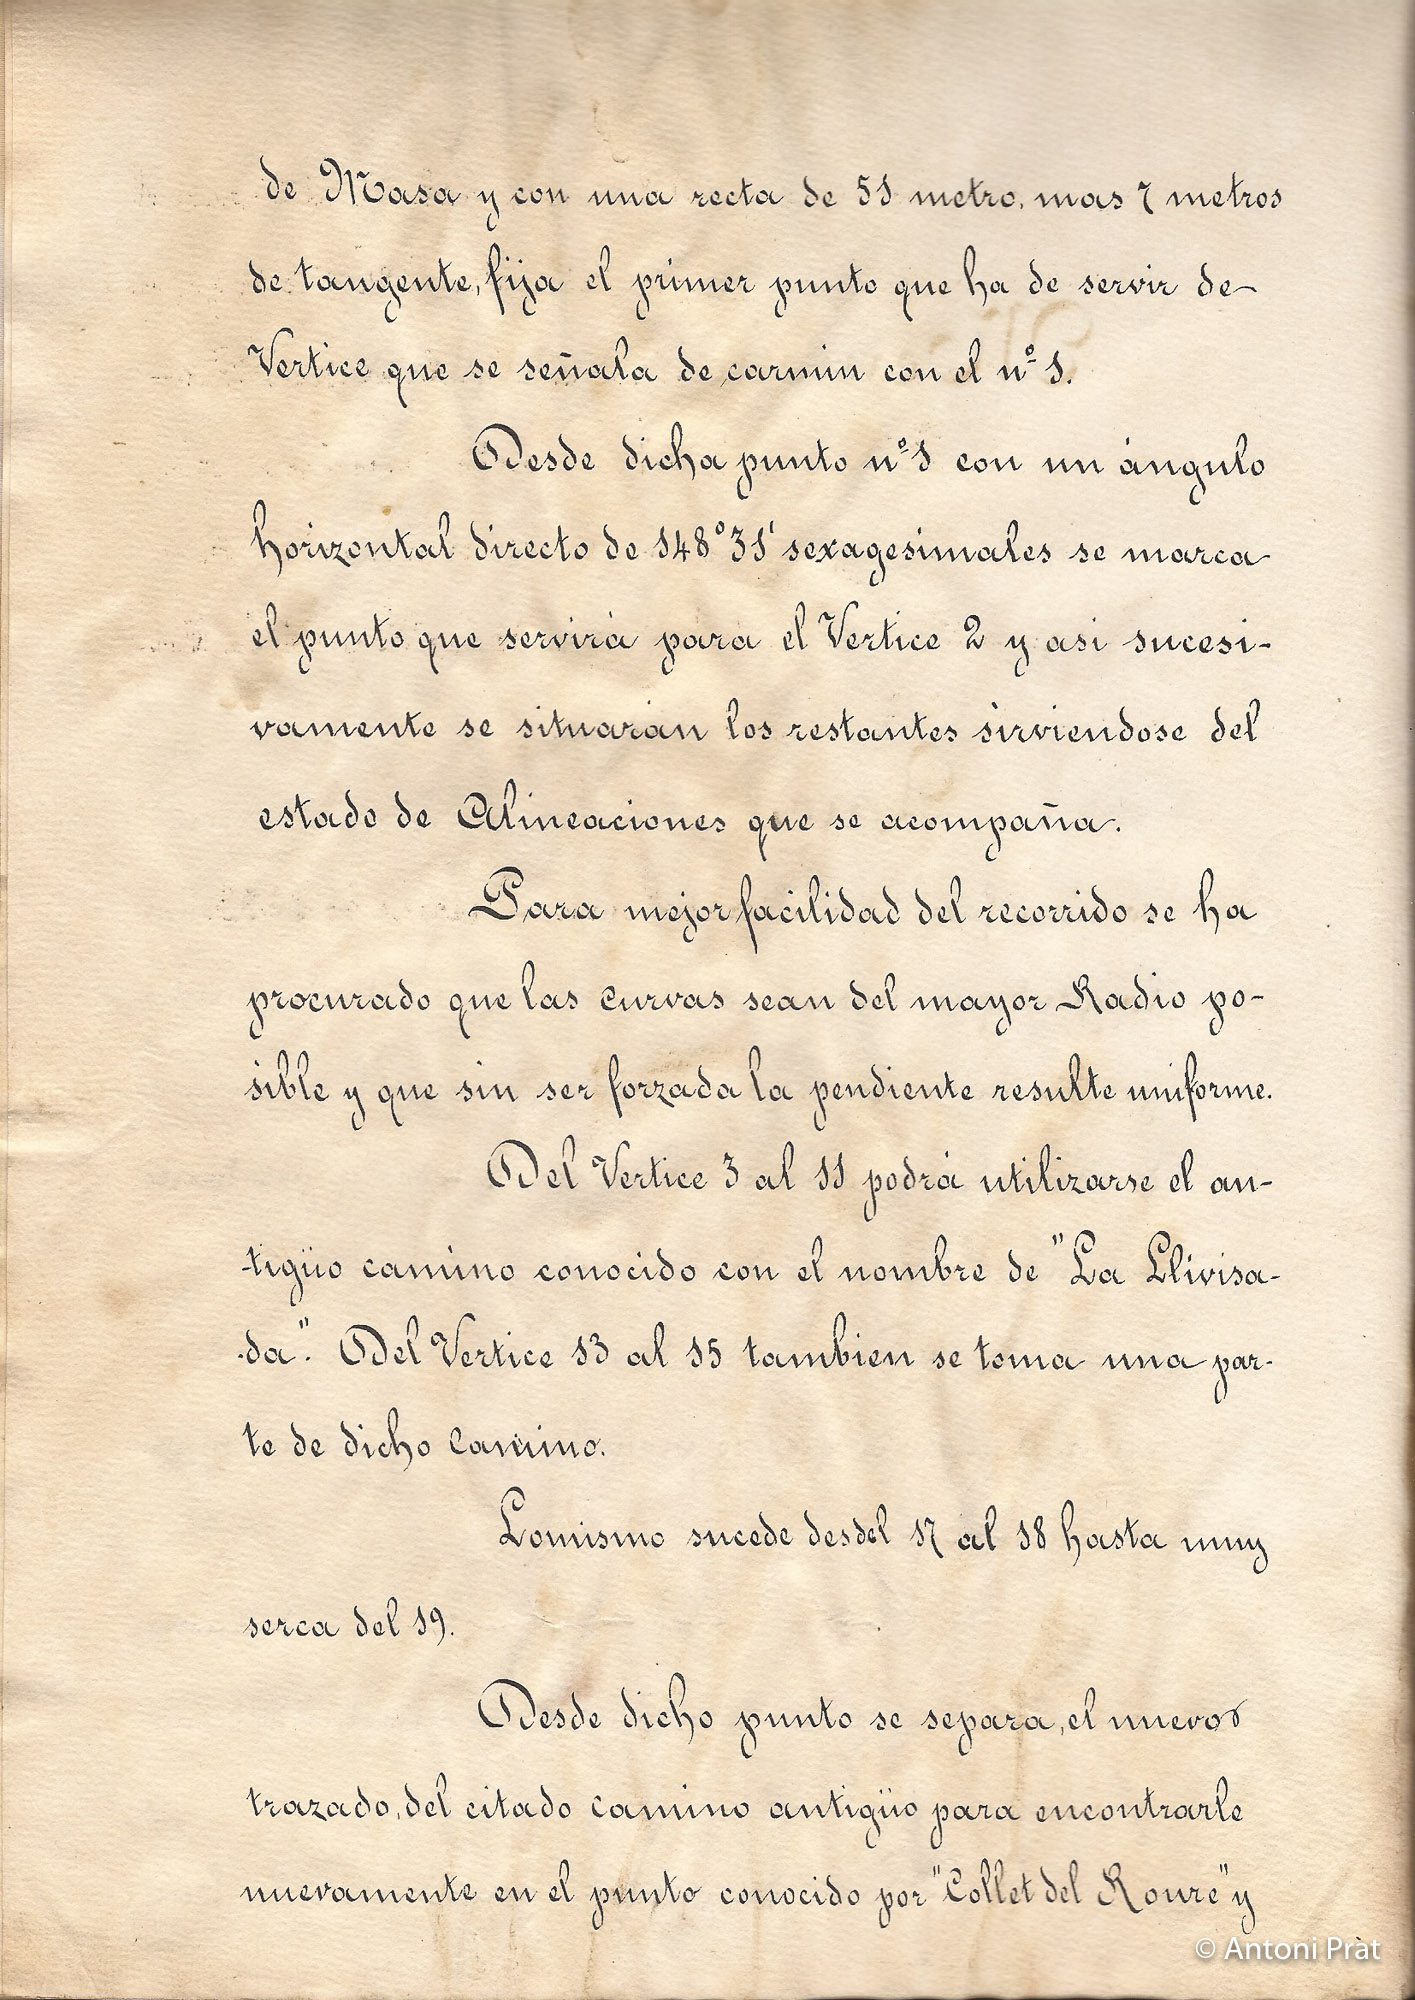 de Masa y con una recta de 51 metro, mas 7 metros
de tangente, fija el primer punto que ha de servir de
Vertice que se señala de carmin con el nº 1.
Desde dicha punto nº 1 con un ángulo
horizontal directo de 148º 31' sexagesimales se marca
el punto que servirá para el Vertice 2 y asi sucesi-
vamente se situarán los restantes sirviendose del
estado de Alineaciones que se acompaña.
Para mejor facilidad del recorrido se ha
procurado que las curvas sean del mayor Radio po-
sible y que sin ser forzada la pendiente resulte uniforme.
Del Vertice 3 al 11 podrá utilizarse el an-
-tigüo camino conocido con el nombre de "La Llivisa-
-da". Del Vertice 13 al 15 tambien se toma una par-
te de dicho Camino.
Lomismo sucede desdel 17 al 18 hasta muy
serca del 19.
Desde dicho punto se separa, el nuevo
trazado, del citado camino antigüo para encontrarle
nuevamente en el punto conocido por "Collet del Roure" y
© Antoni Prat